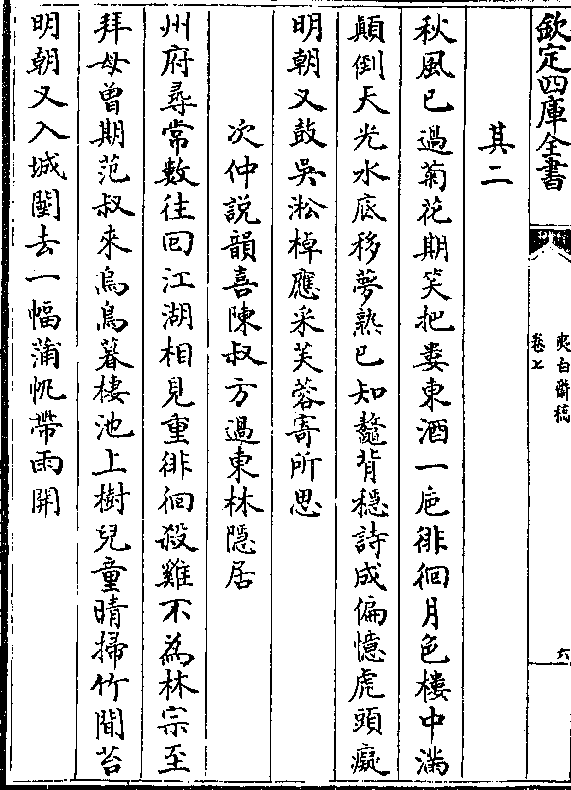 欽定四庫全書
夷白齋稿
卷七
六
其二
秋風已過菊花期笑把婁東酒一巵徘徊月色樓中滿
顛倒天光水底移夢熟已知鼇背穩詩成偏憶虎頭癡
明朝又鼓吳淞棹應采芙蓉寄所思
次仲說韻喜陳叔方過東林隱居
州府尋常數往回江湖相見重徘徊殺雞不為林宗至
拜母曾期范叔來烏鳥暮棲池上樹兒童晴掃竹間苔
明朝又入城闉去一幅蒲帆帶雨開